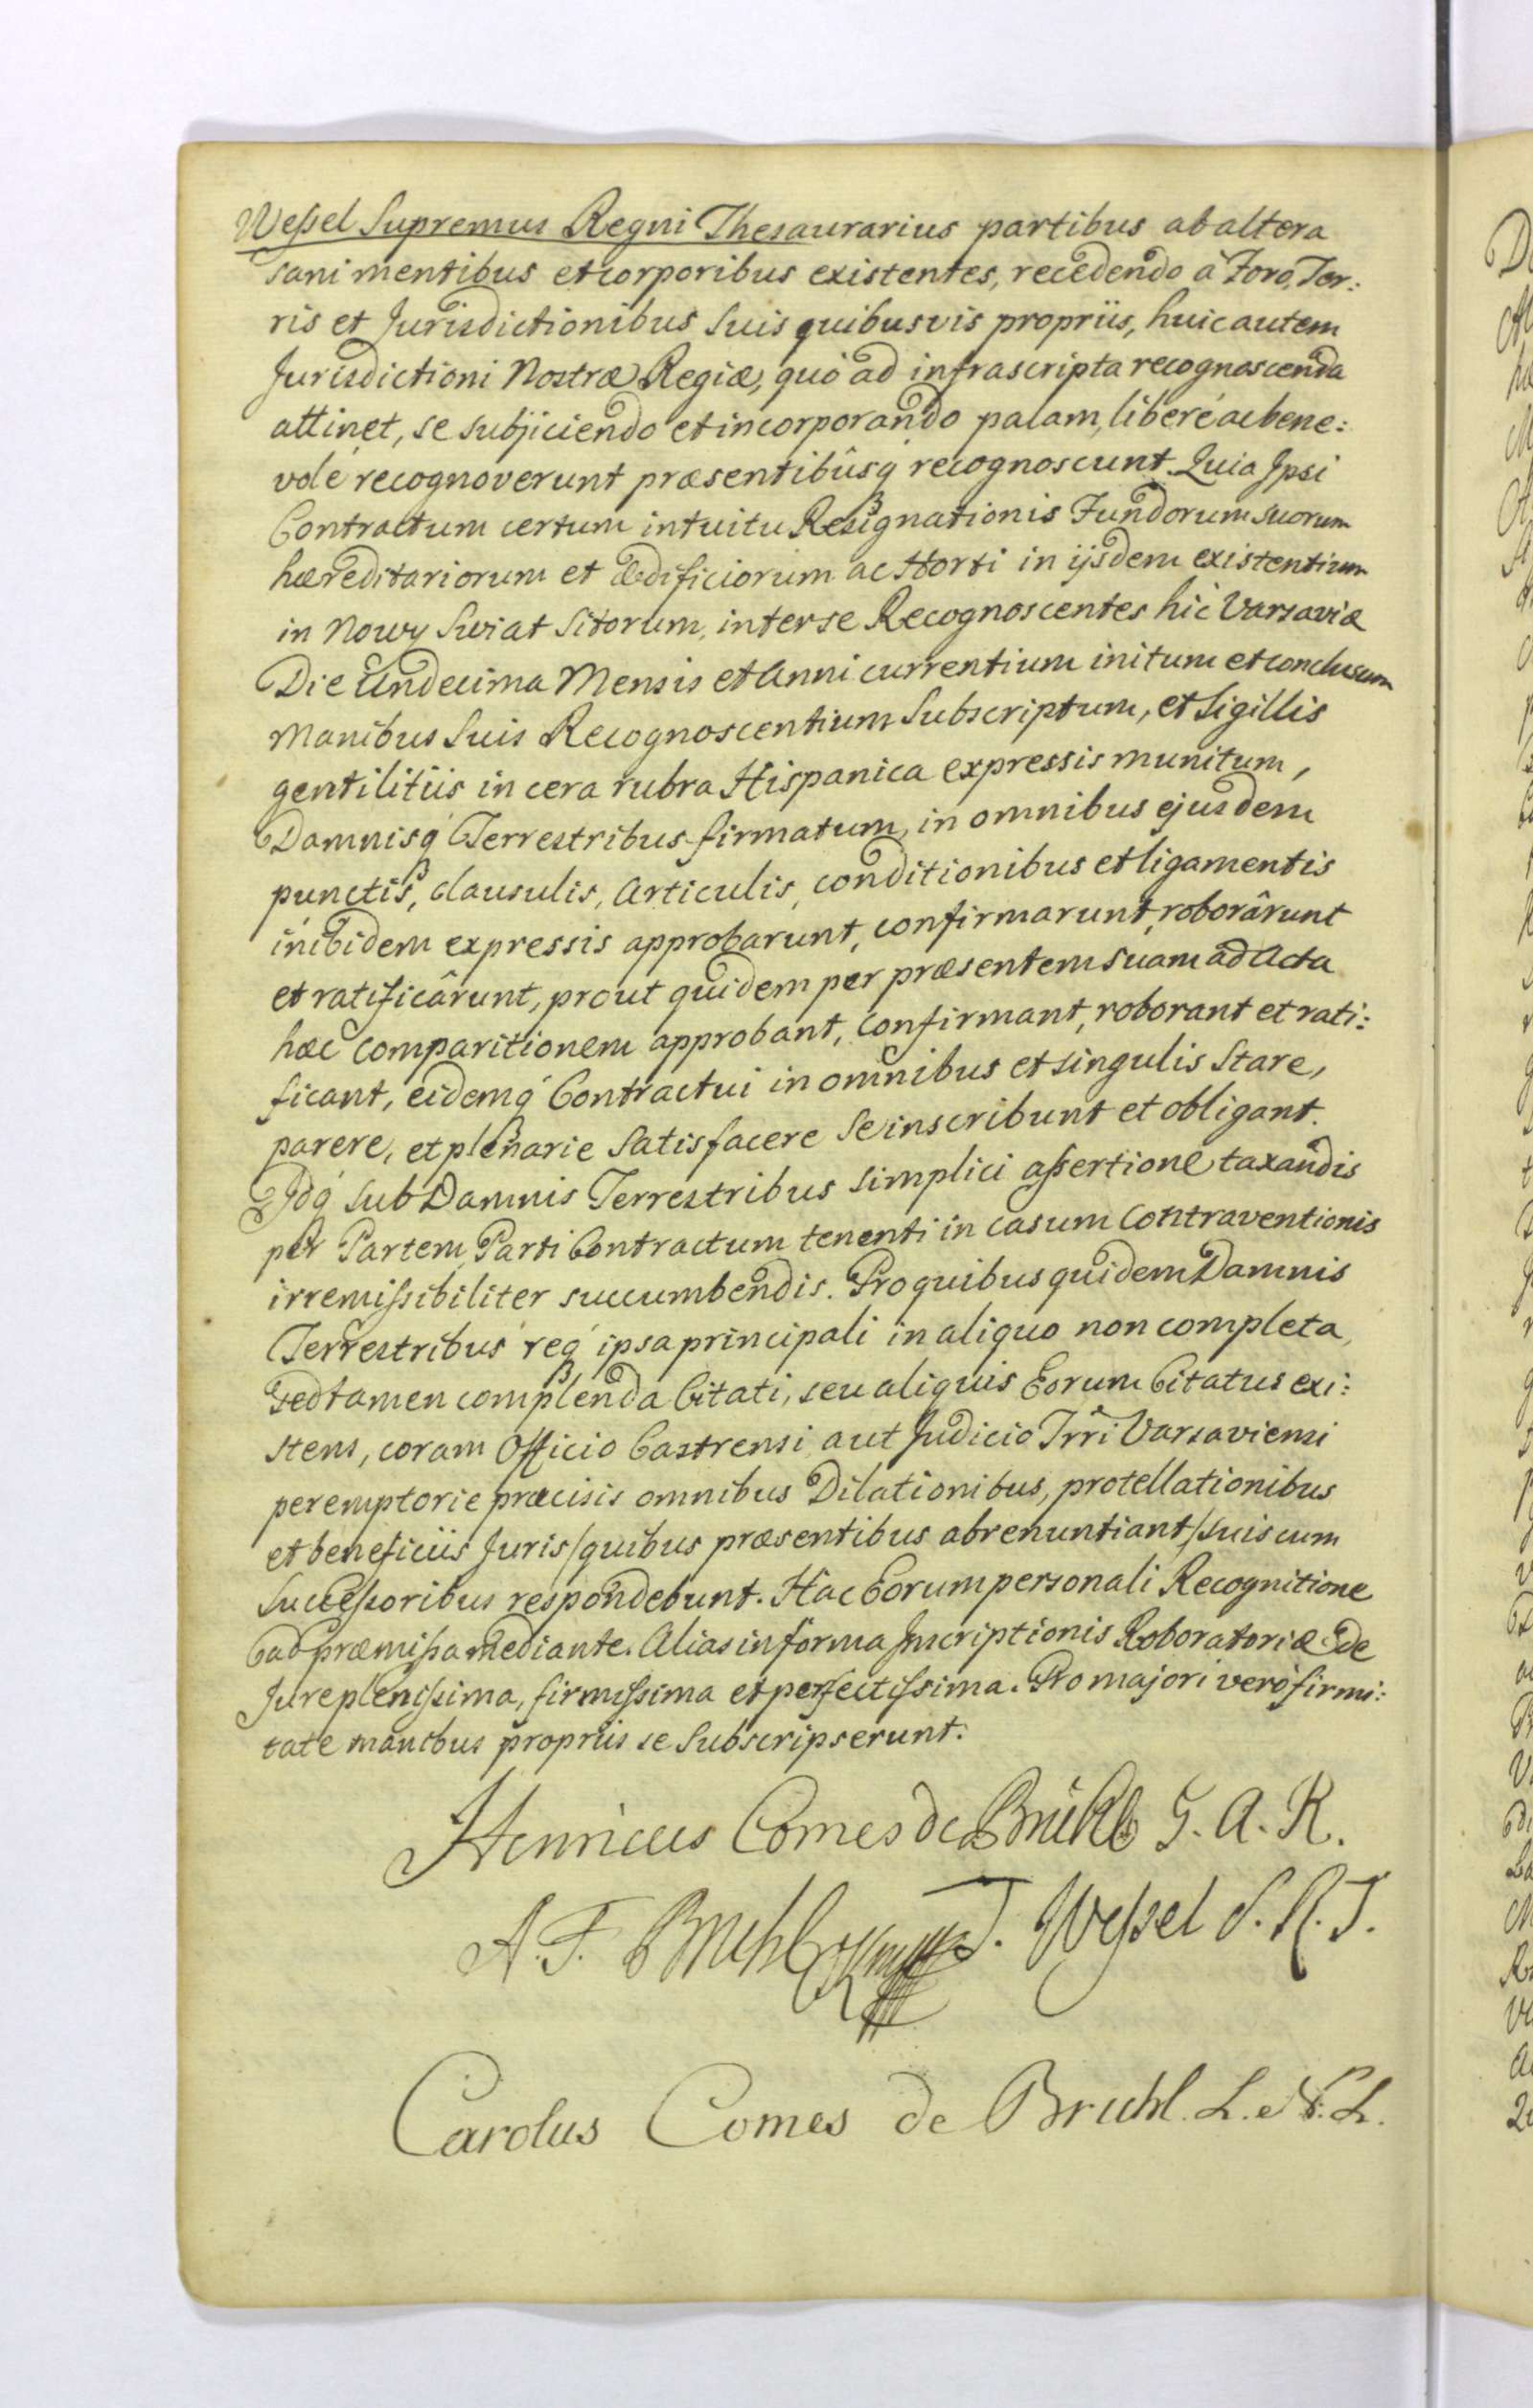 Weſsel Supremus Regni Thesaurarius partibus ab altera
sani mentibus et corporibus existentes, recedendo à Foro, Ter:
ris et Jurisdictionibus Suis quibusvis propriis, huic autem
Jurisdictioni Nostræ Regiæ, quò ad infrascripta recognoscenda
attinet, se subjiciendo et incorporando palam, liberé ac bene:
volé recognoverunt præsentibûsq́ recognoscunt. Quia Ipsi
Contractum certum intuitu Resignationis Fundorum suorum
hæreditariorum et ædificiorum ac Horti in ijsdem existentium
in Nowy Swiat Sitorum, inter se Recognoscentes hic Varsaviæ
Die Undecima Mensis et Anni currentium initum et conclusum
Manibus Suis Recognoscentium Subscriptum, et Sigillis
gentilitiis in cera rubra Hispanica expressis munitum,
Damnisq́ Terrestribus firmatum, in omnibus ejusdem
punctis, clausulis, Articulis, conditionibus et ligamentis
inibidem expressis approbarunt, confirmarunt, roborârunt
et ratificârunt, prout quidem per præsentem suam ad Acta
hæc comparitionem approbant, confirmant, roborant et rati:
ficant, eidemq́ Contractui in omnibus et singulis Stare,
parere, et plenarie Satisfacere Se inscribunt et obligant.
Idq́ sub Damnis Terrestribus simplici aſsertione taxandis
per Partem Parti Contractum tenenti in casum Contraventionis
irremiſsibiliter succumbendis. Pro quibus quidem Damnis
Terrestribus req́ ipsa principali in aliquo non completa,
Sed tamen complenda Citati, seu aliquis Eorum Citatus exi:
stens, coram Officio Castrensi aut Judicio Trri Varsaviensi
peremptorie præcisis omnibus Dilationibus, protellationibus
et beneficiis Juris /quibus præsentibus abrenuntiant/ suis cum
Succeſsoribus respondebunt. Hac Eorum personali Recognitione
ad præmiſsa mediante. Alias in forma Inscriptionis Roboratoriæ de
Jure pleniſsima, firmiſsima et perfectiſsima. Pro majori verò firmi:
tate manibus propriis se Subscripserunt.
Henricus Comes de Brühl G. A. R.
A. F. Bruhl T. Weſsel S. R. T.
Carolus Comes de Bruhl. L. N. L.